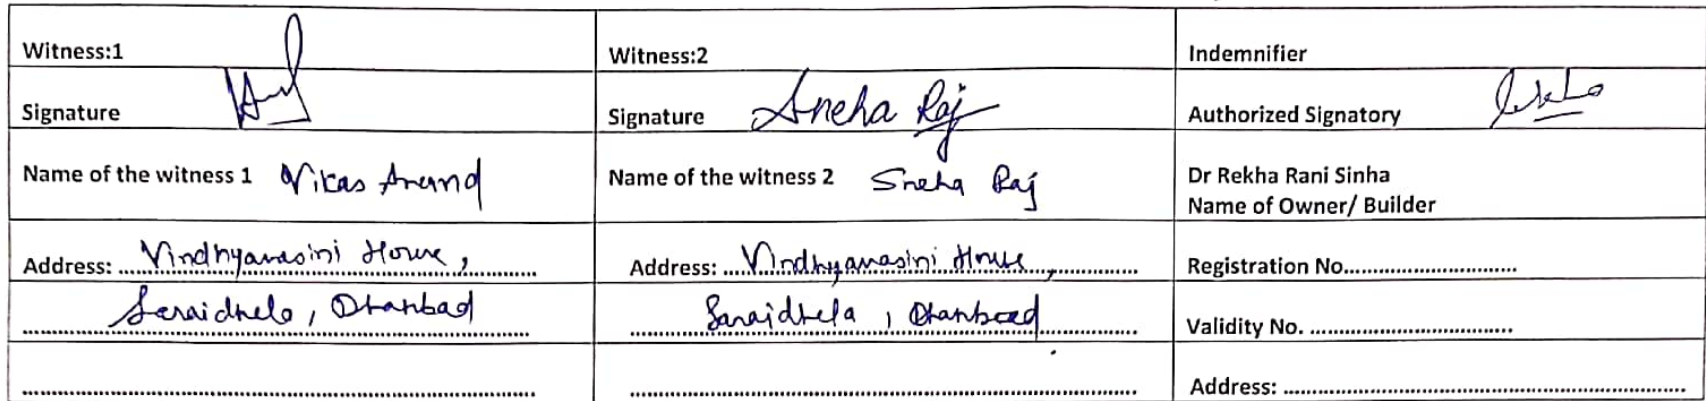 Witness:1 Witness:2 Indemnifier
Signature Signature Sneha Raj Authorized Signatory
Name of the witness 1 Vikas Anand Name of the witness 2 Sneha Raj Dr Rekha Rani Sinha
Name of Owner/ Builder
Address: Vindhyavasini House, Address: Vindhyavasini House, Registration No.
Saraidhela, Dhanbad Saraidhela, Dhanbad Validity No.
Address: